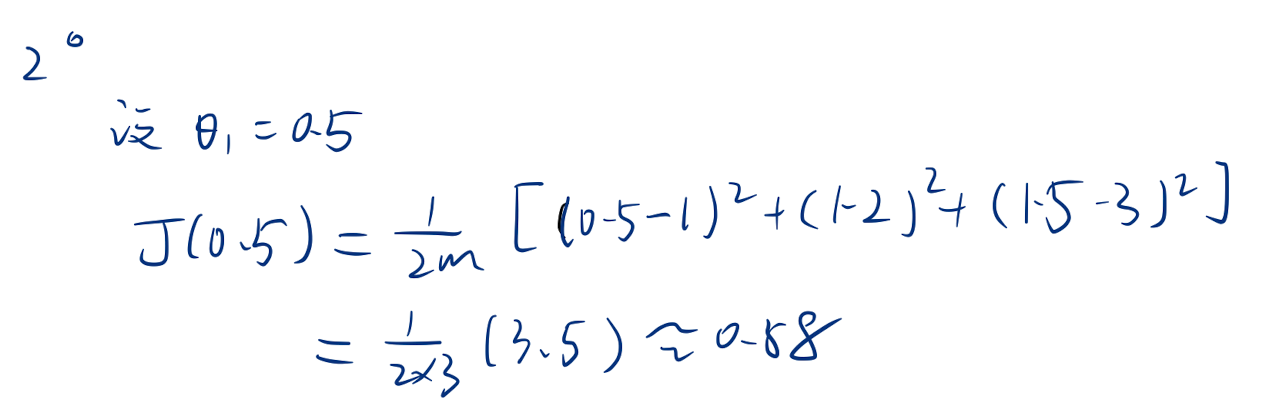 2°
设 θ₁ = 0.5
J(0.5) = \frac{1}{2m} [(0.5-1)² + (1-2)² + (1.5-3)²]
= \frac{1}{2×3} (3.5) ≈ 0.58